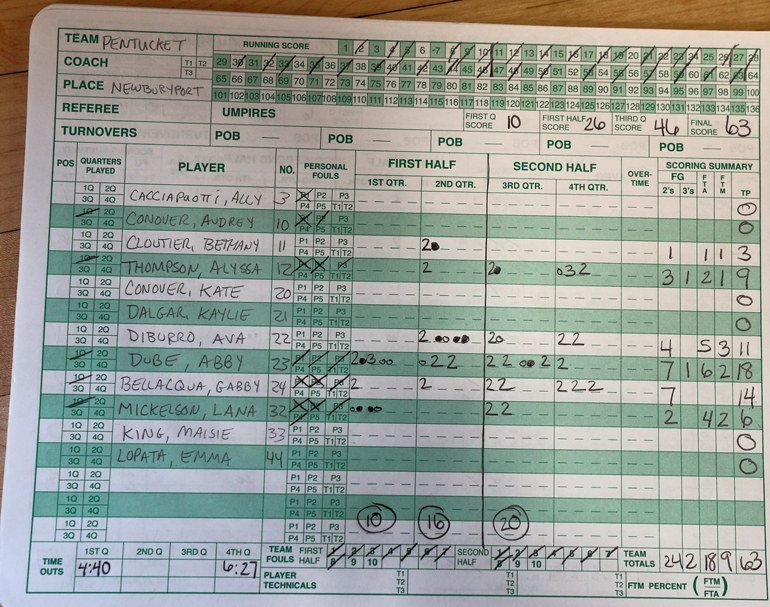 TEAM PENTUCKET RUNNING SCORE 1 2 3 4 5 6 7 8 9 10 11 12 13 14 15 16 17 18 19 20 21 22 23 24 25 26 27 28
COACH T1 T2 T3 29 30 31 32 33 34 35 36 37 38 39 40 41 42 43 44 45 46 47 48 49 50 51 52 53 54 55 56 57 58 59 60 61 62 63 64
PLACE NEWBURYPORT 65 66 67 68 69 70 71 72 73 74 75 76 77 78 79 80 81 82 83 84 85 86 87 88 89 90 91 92 93 94 95 96 97 98 99 100
101 102 103 104 105 106 107 108 109 110 111 112 113 114 115 116 117 118 119 120 121 122 123 124 125 126 127 128 129 130 131 132 133 134 135 136
REFEREE UMPIRES FIRST Q SCORE 10 FIRST HALF SCORE 26 THIRD Q SCORE 46 FINAL SCORE 63
TURNOVERS POB POB POB POB POB
POS QUARTERS PLAYED PLAYER NO. PERSONAL FOULS FIRST HALF SECOND HALF OVER-TIME SCORING SUMMARY
1ST QTR. 2ND QTR. 3RD QTR. 4TH QTR. FG 2's 3's FTA FTM TP
1Q 2Q 3Q 4Q CACCIAPUOTTI, ALLY 3 P1 P2 P3 P4 P5 T1 T2 0
1Q 2Q 3Q 4Q CONOVER, AUDREY 10 P1 P2 P3 P4 P5 T1 T2 0
1Q 2Q 3Q 4Q CLOUTIER, BETHANY 11 P1 P2 P3 P4 P5 T1 T2 2 1 1 1 3
1Q 2Q 3Q 4Q THOMPSON, ALYSSA 12 P1 P2 P3 P4 P5 T1 T2 2 2 032 3 1 2 1 9
1Q 2Q 3Q 4Q CONOVER, KATE 20 P1 P2 P3 P4 P5 T1 T2 0
1Q 2Q 3Q 4Q DALGAR, KAYLIE 21 P1 P2 P3 P4 P5 T1 T2 0
1Q 2Q 3Q 4Q DIBURRO, AVA 22 P1 P2 P3 P4 P5 T1 T2 2 20 22 4 5 3 11
1Q 2Q 3Q 4Q DUBE, ABBY 23 P1 P2 P3 P4 P5 T1 T2 2 3 00 022 22 2 2 7 1 6 2 18
1Q 2Q 3Q 4Q BELLACQUA, GABBY 24 P1 P2 P3 P4 P5 T1 T2 2 2 22 222 7 14
1Q 2Q 3Q 4Q MICKELSON, LANA 32 P1 P2 P3 P4 P5 T1 T2 22 2 4 2 6
1Q 2Q 3Q 4Q KING, MAISIE 33 P1 P2 P3 P4 P5 T1 T2 0
1Q 2Q 3Q 4Q LOPATA, EMMA 44 P1 P2 P3 P4 P5 T1 T2 0
1Q 2Q 3Q 4Q P1 P2 P3 P4 P5 T1 T2
1Q 2Q 3Q 4Q P1 P2 P3 P4 P5 T1 T2
1Q 2Q 3Q 4Q P1 P2 P3 P4 P5 T1 T2 10 16 20
TIME OUTS 1ST Q 4:40 2ND Q 3RD Q 4TH Q 6:27 TEAM FOULS FIRST HALF 1 2 3 4 5 6 7 8 9 10 SECOND HALF 1 2 3 4 5 6 7 8 9 10 TEAM TOTALS 24 2 18 9 63
PLAYER TECHNICALS T1 T2 T3 T1 T2 T3 T1 T2 T3 FTM PERCENT (FTM FTA)